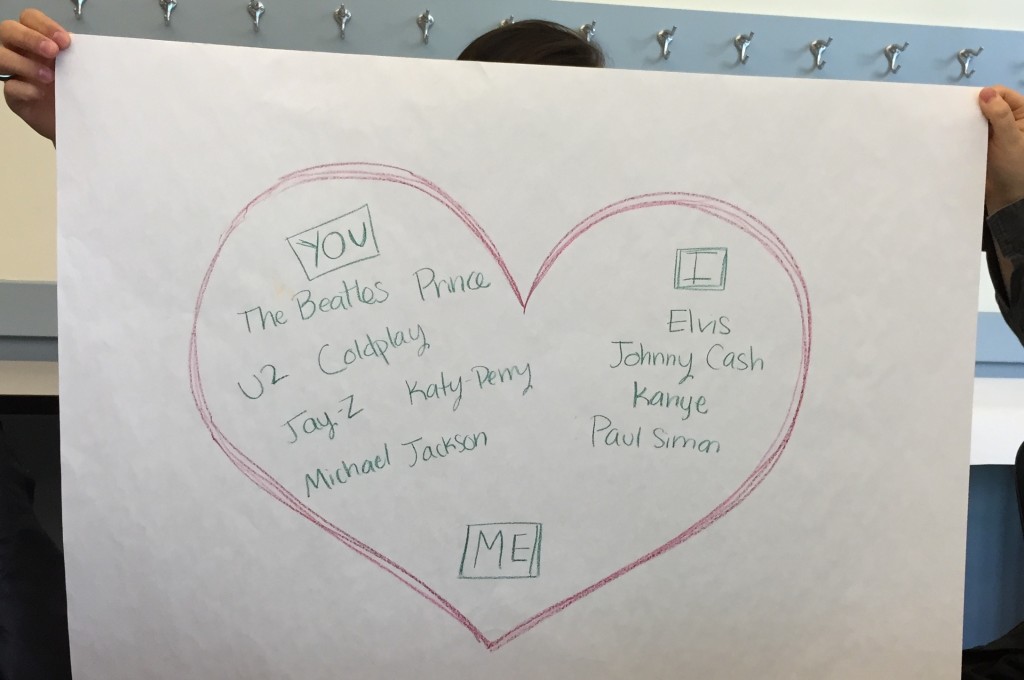 YOU
The Beatles Prince
U2 Coldplay
Jay-Z Katy-Perry
Michael Jackson
I
Elvis
Johnny Cash
Kanye
Paul Simon
ME